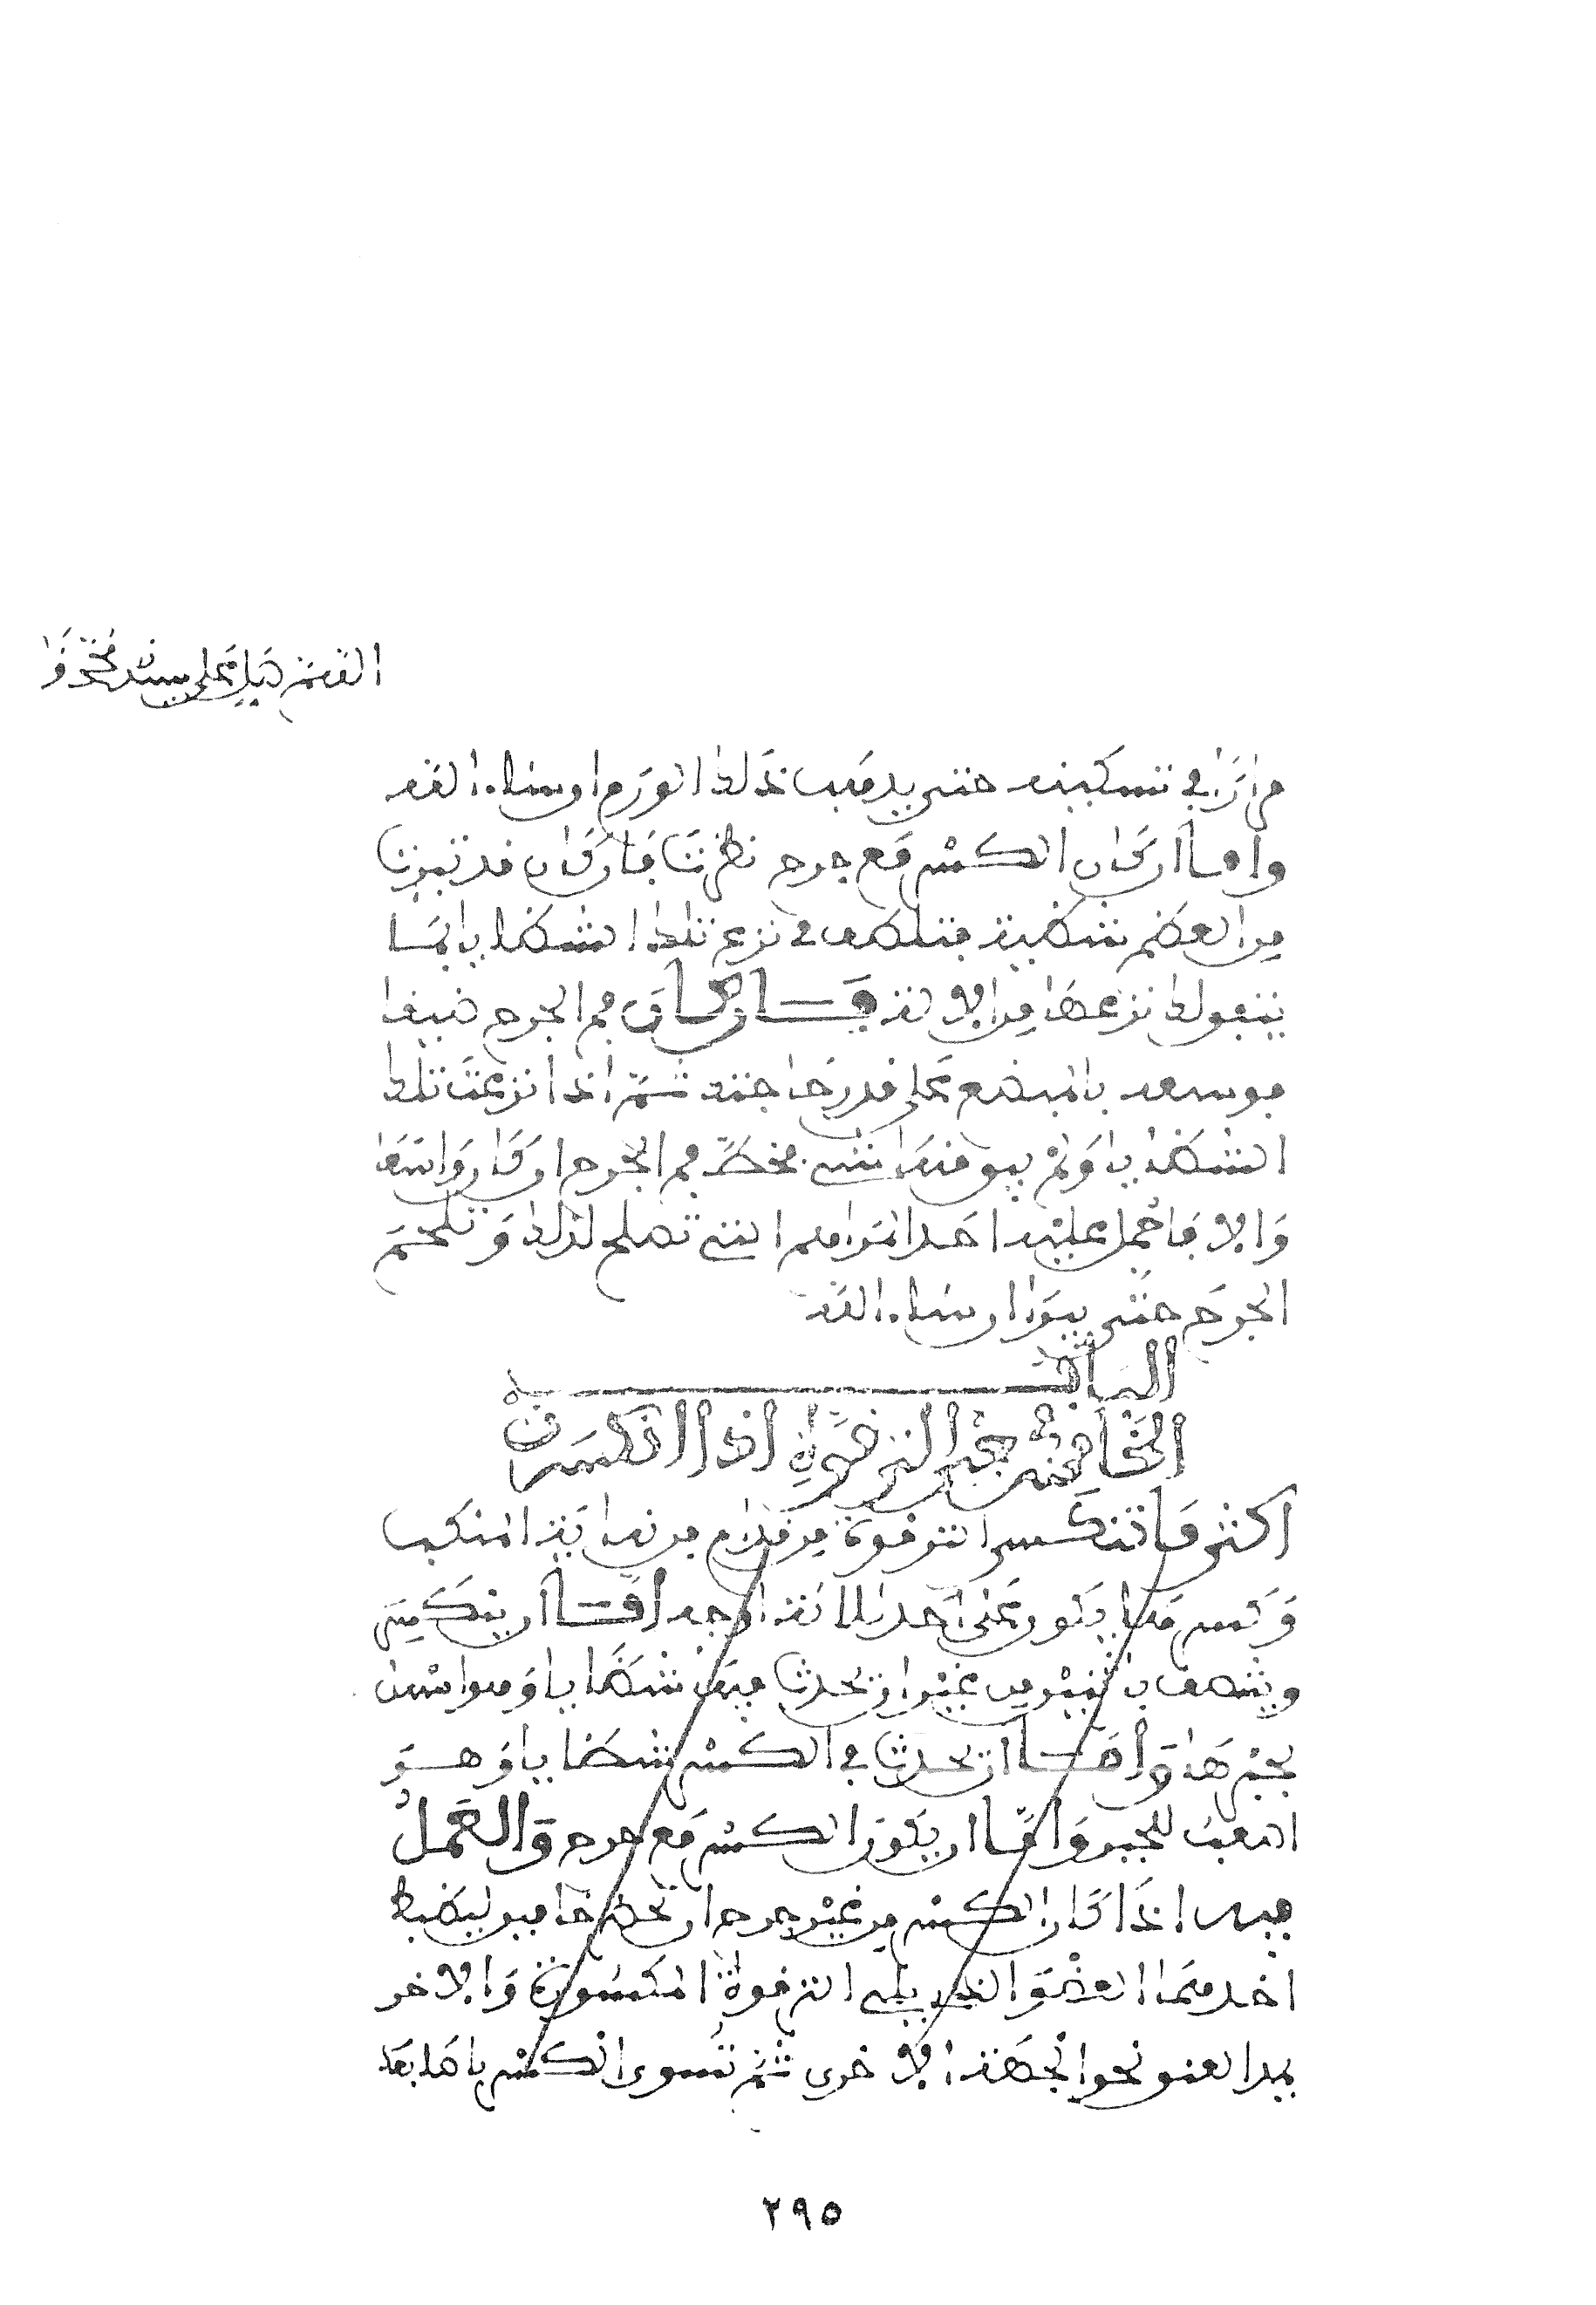 مرارا في تسكينه حتى يذهب ذلك الورم ان شاء الله
واما ان كان الكسر مع جرح نظرت فان كان قد تبرت
من العظم شظية فتلطف في نزع تلك الشظايا بما
يتفق لك نزعها من الالة فان كان فم الجرح ضيقا
فوسعه بالمبضع على قدر حاجتك ثم اذا نزعت تلك
الشظايا ولم يبق منها شيء فخط فم الجرح ان كان واسعا
والا فاحمل عليه احد المراهم التي تصلح لذلك وتلحم
الجرح حتى يبرا ان شاء الله
الباب
الخامس في جبر الترقوة اذا انكسرت
اكثر ما تنكسر الترقوة من قدام من ناحية المنكب
وكسرها يكون على احد ثلاثة اوجه اما ان ينكسر
وينقصف باثنين من غير ان تحدث فيها شظايا وهو اسهل
جبرها واما ان تحدث في الكسر شظايا وهو
اصعب للجبر واما ان يكون الكسر مع جرح والعمل
فيه اذا كان الكسر من غير جرح ان تحضر خادمين ليضبط
احدهما العضو الذي يلي الترقوة المكسورة والاخر
يمد العنق نحو الجهة الاخرى ثم تسوي الكسر باصابعك
٢٩٥